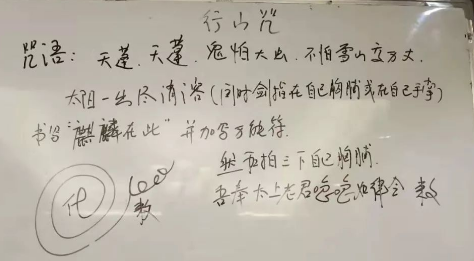 行山咒
咒语：天蓬、天蓬、鬼怕大虫、不怕雪山高万丈
太阳一出尽消溶（同时剑指在自己胸脯或在自己手掌）
书写“麒麟在此”并加写万能符.
然后拍三下自己胸脯.
吾奉太上老君急急如律令 敕
化
敕